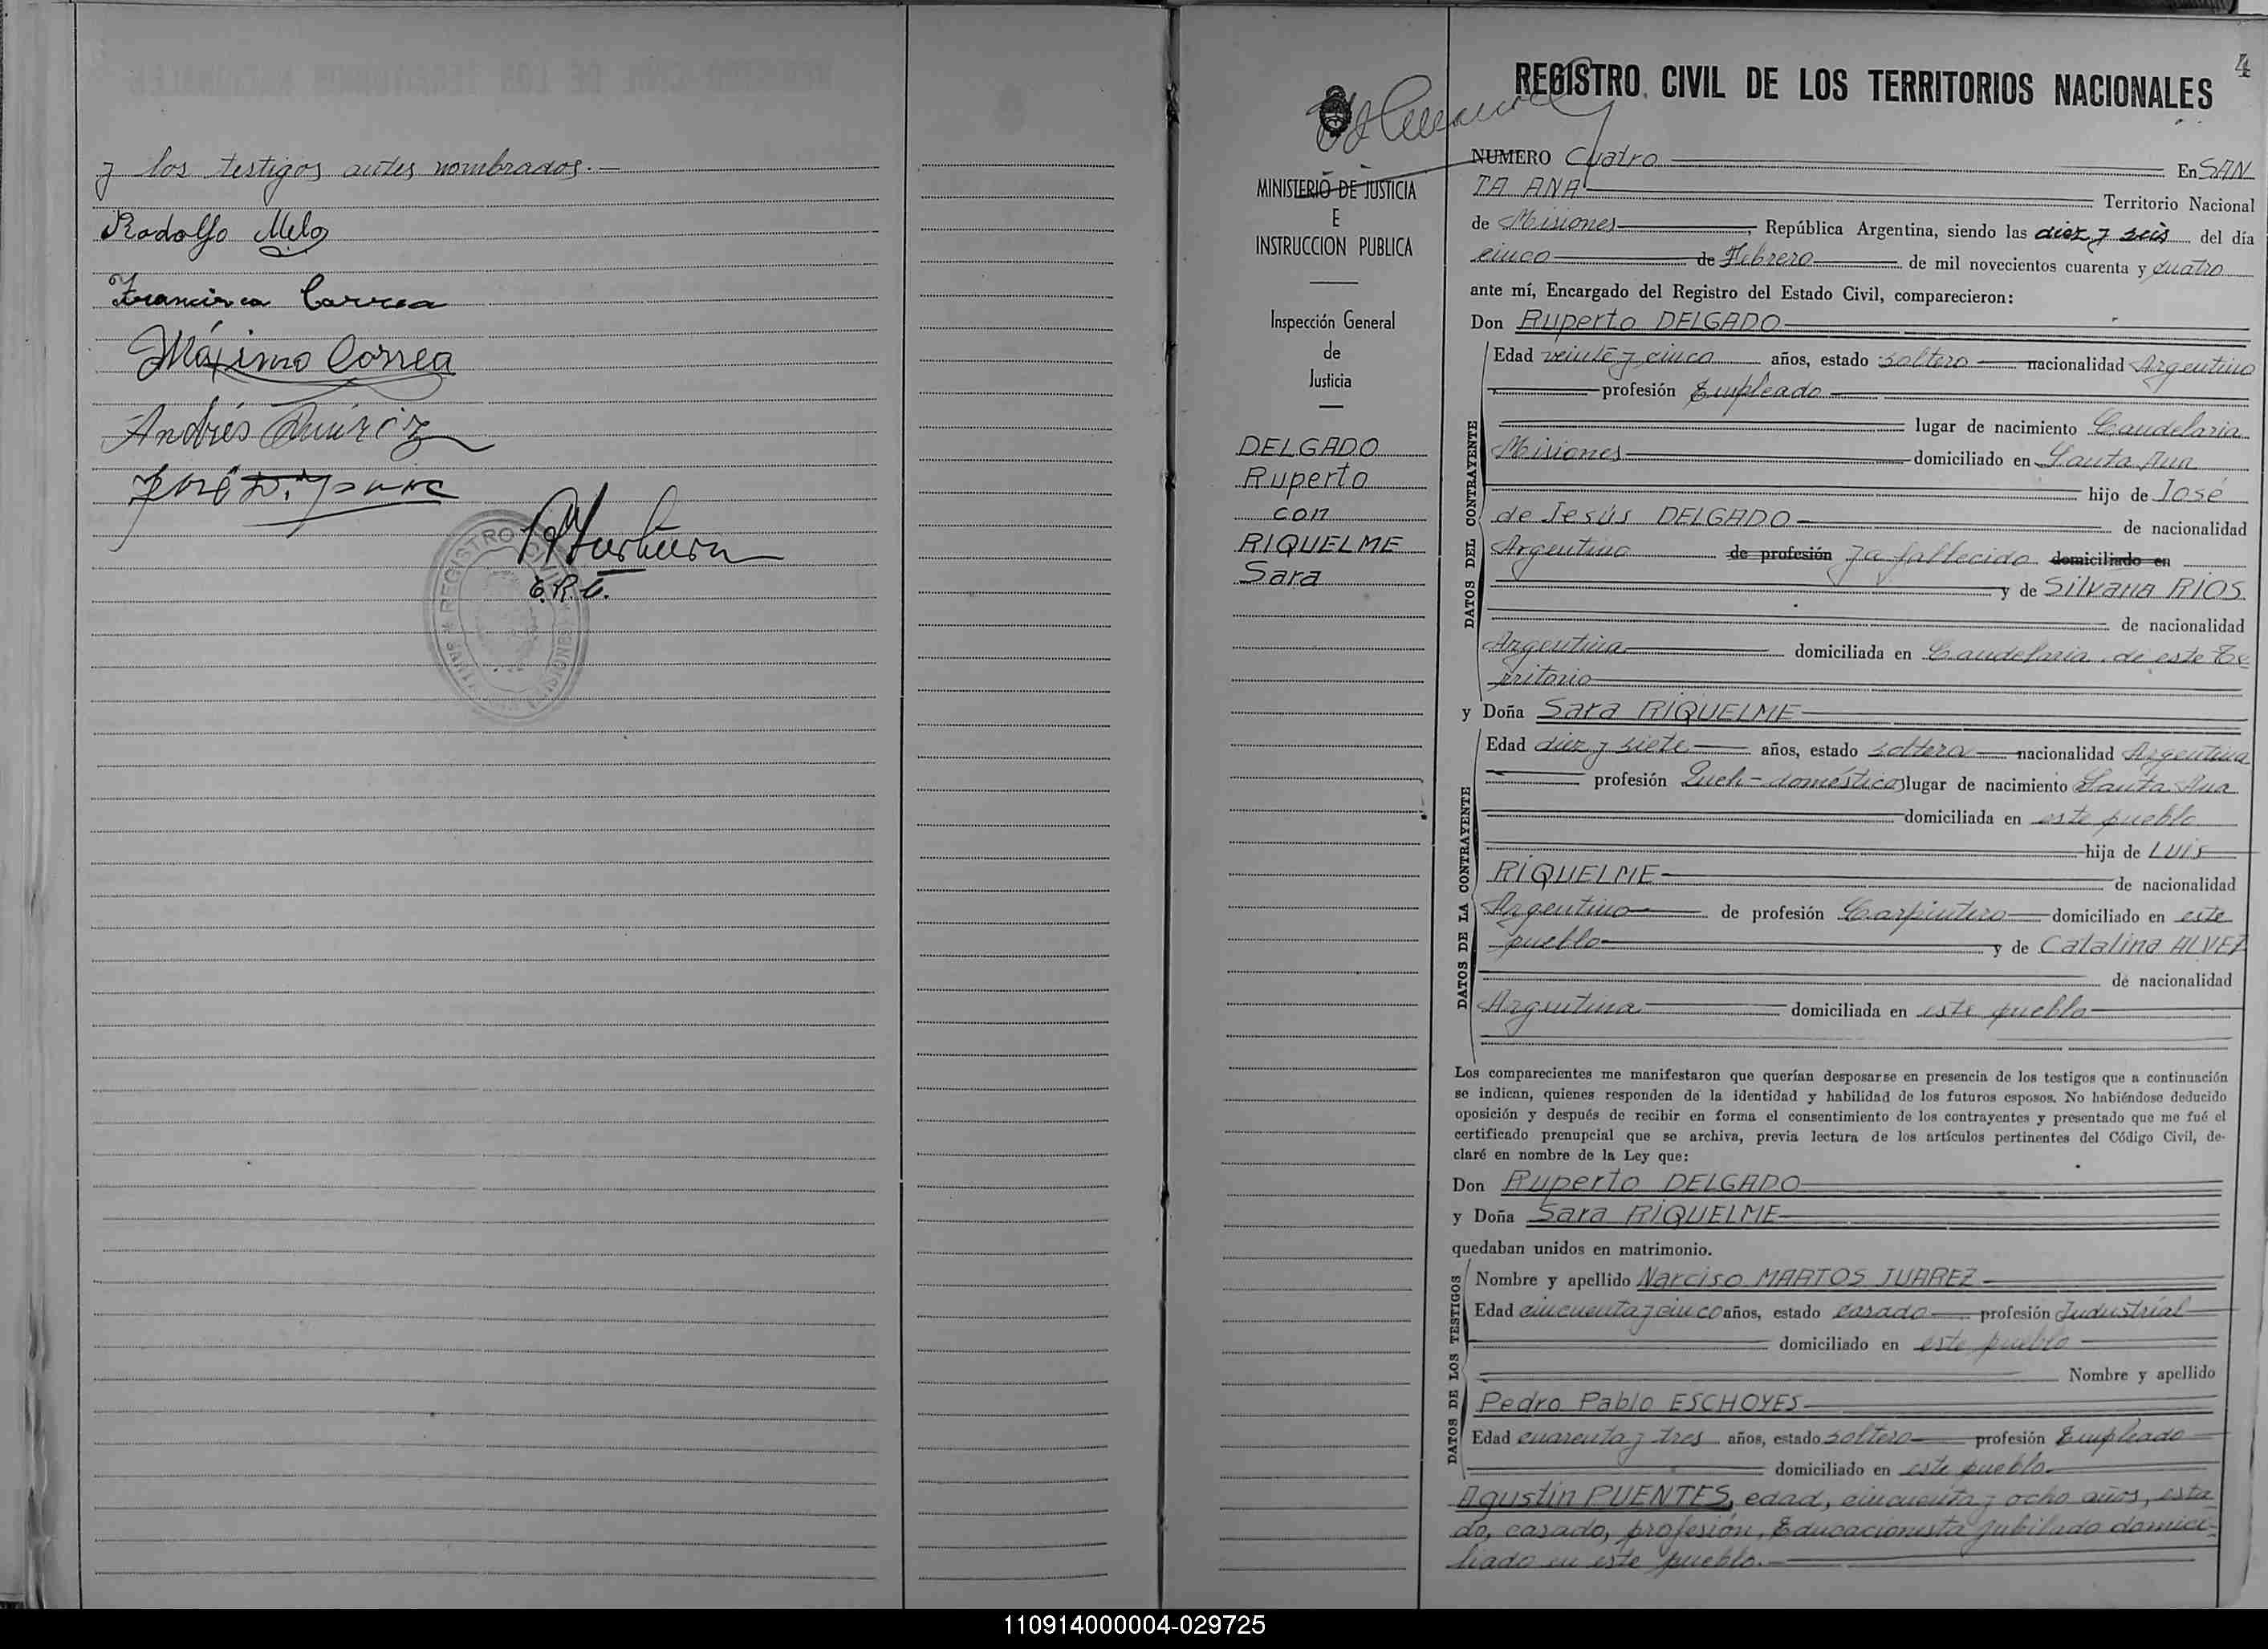 y los testigos antes nombrados.—
Rodolfo Melo
Francisca Correa
Máximo Correa
Andrés
José D.
E.R.C.
REGISTRO CIVIL
4
REGISTRO CIVIL DE LOS TERRITORIOS NACIONALES
MINISTERIO DE JUSTICIA
E
INSTRUCCION PUBLICA
Inspección General
de
Justicia
DELGADO
Ruperto
con
RIQUELME
Sara
NUMERO Cuatro En SAN
TA ANA Territorio Nacional
de Misiones, República Argentina, siendo las diez y seis del día
cinco de Febrero de mil novecientos cuarenta y cuatro
ante mí, Encargado del Registro del Estado Civil, comparecieron:
Don Ruperto DELGADO
DATOS DEL CONTRAYENTE
Edad veinte y cinco años, estado soltero nacionalidad Argentino
profesión Empleado
lugar de nacimiento Candelaria
Misiones domiciliado en Santa Ana
hijo de José
de Jesús DELGADO de nacionalidad
Argentino de profesión ya fallecido domiciliado en
y de Silvana RIOS
de nacionalidad
Argentina domiciliada en Candelaria de este Te-
rritorio
y Doña Sara RIQUELME
DATOS DE LA CONTRAYENTE
Edad diez y siete años, estado soltera nacionalidad Argentina
profesión Queh-domésticos lugar de nacimiento Santa Ana
domiciliada en este pueblo
hija de Luis
RIQUELME de nacionalidad
Argentino de profesión Carpintero domiciliado en este
pueblo y de Catalina ALVEZ
de nacionalidad
Argentina domiciliada en este pueblo
Los comparecientes me manifestaron que querían desposarse en presencia de los testigos que a continuación
se indican, quienes responden de la identidad y habilidad de los futuros esposos. No habiéndose deducido
oposición y después de recibir en forma el consentimiento de los contrayentes y presentado que me fué el
certificado prenupcial que se archiva, previa lectura de los artículos pertinentes del Código Civil, de-
claré en nombre de la Ley que:
Don Ruperto DELGADO
y Doña Sara RIQUELME
quedaban unidos en matrimonio.
DATOS DE LOS TESTIGOS
Nombre y apellido Narciso MARTOS JUAREZ
Edad cincuenta y cinco años, estado casado profesión Industrial
domiciliado en este pueblo
Nombre y apellido
Pedro Pablo ESCHOYES
Edad cuarenta y tres años, estado soltero profesión Empleado
domiciliado en este pueblo.
Agustin PUENTES, edad, cincuenta y ocho años, esta
do, casado, profesión, Educacionista jubilado domici-
liado en este pueblo.—
110914000004-029725